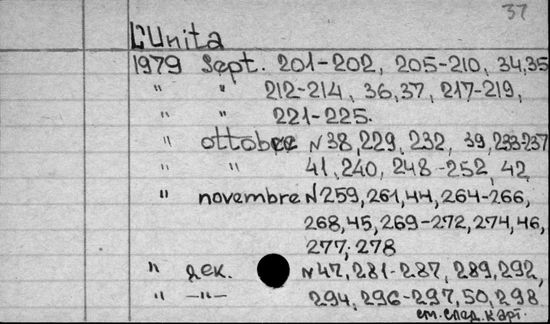 37
L'Unita
1979 Sept. 201-202, 205-210, 34,35
" " 212-214, 36,37, 217-219,
" " 221-225.
" ottobre N38,229,232, 39,233-237
" " 41,240, 248-252, 42,
" novembre N259,261,44,264-266,
268,45,269-272,274,46,
277,278
" дек. N47,281-287,289,292,
" -"- 294,296-297,50,298
см. след. карт.